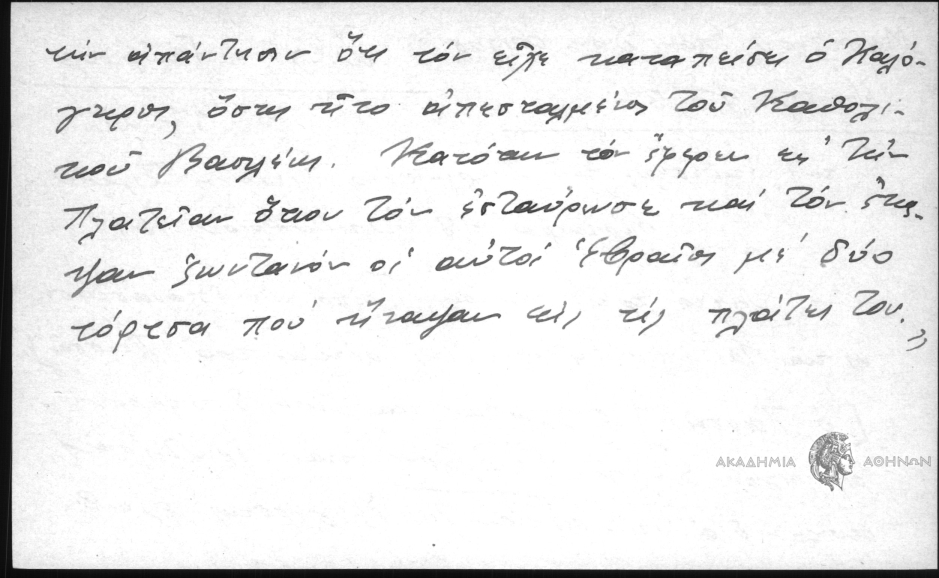 τήν ἀπάντησιν ὅτι τόν εἶχε καταπείσει ὁ Καλό-
γηρος, ὅστις ἦτο ἀπεσταλμένος τοῦ Καθολι-
κοῦ Βασιλέως. Κατόπιν τόν ἔφεραν εἰς τήν
Πλατεῖαν ὅπου τόν ἐσταύρωσε καί τόν ἔκα-
ψαν ζωντανόν οἱ αὐτοί Ἑβραῖοι μέ δύο
τόρτσα πού ἤναψαν εἰς τίς πλάτες του."
ΑΚΑΔΗΜΙΑ ΑΘΗΝΩΝ